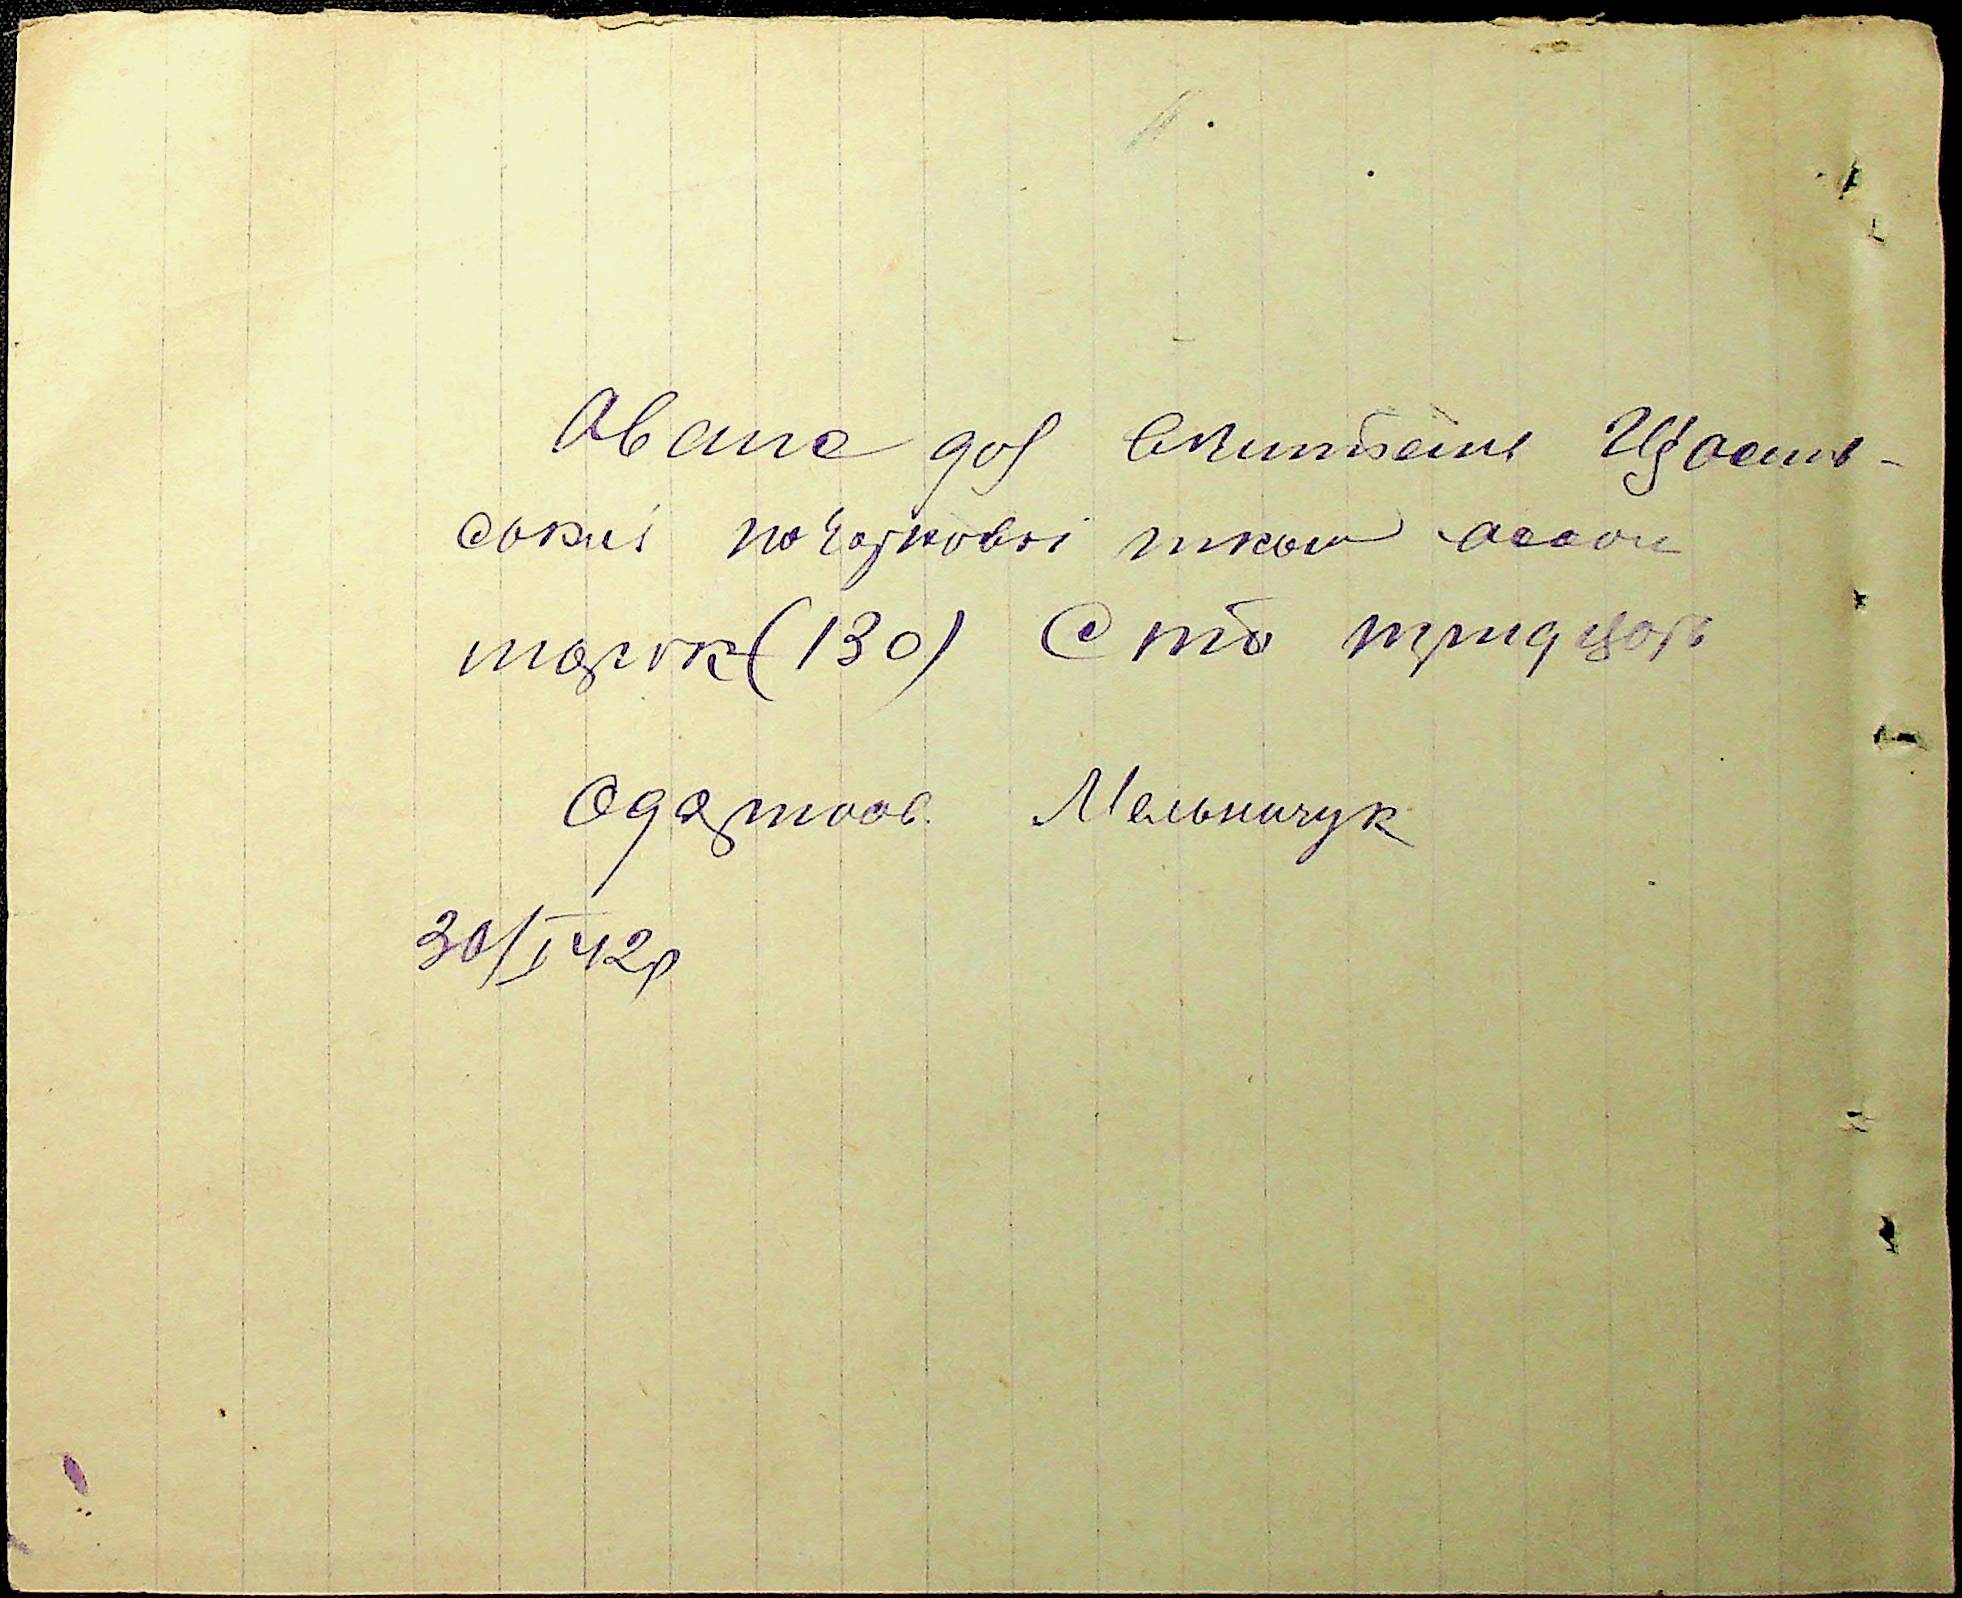 Аванс для вчителів
ської початкової школи
марок (130) Сто тридцать
Одержав Мельничук
30/I 42р